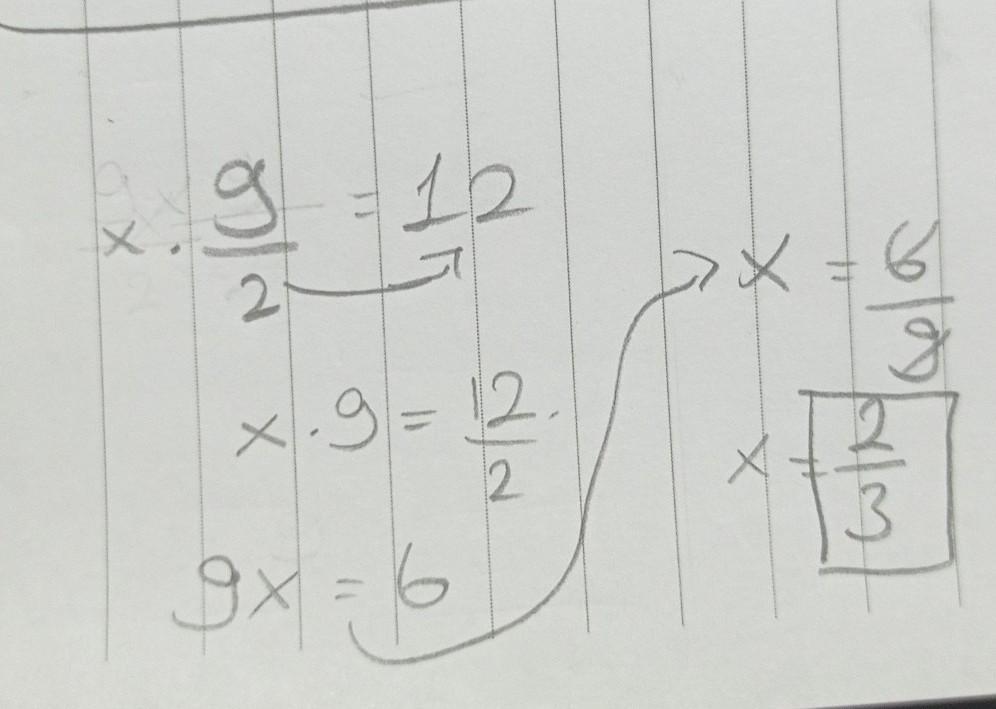 x · 9/2 = 12
x · 9 = 12/2
9x = 6
x = 6/9
x = 2/3